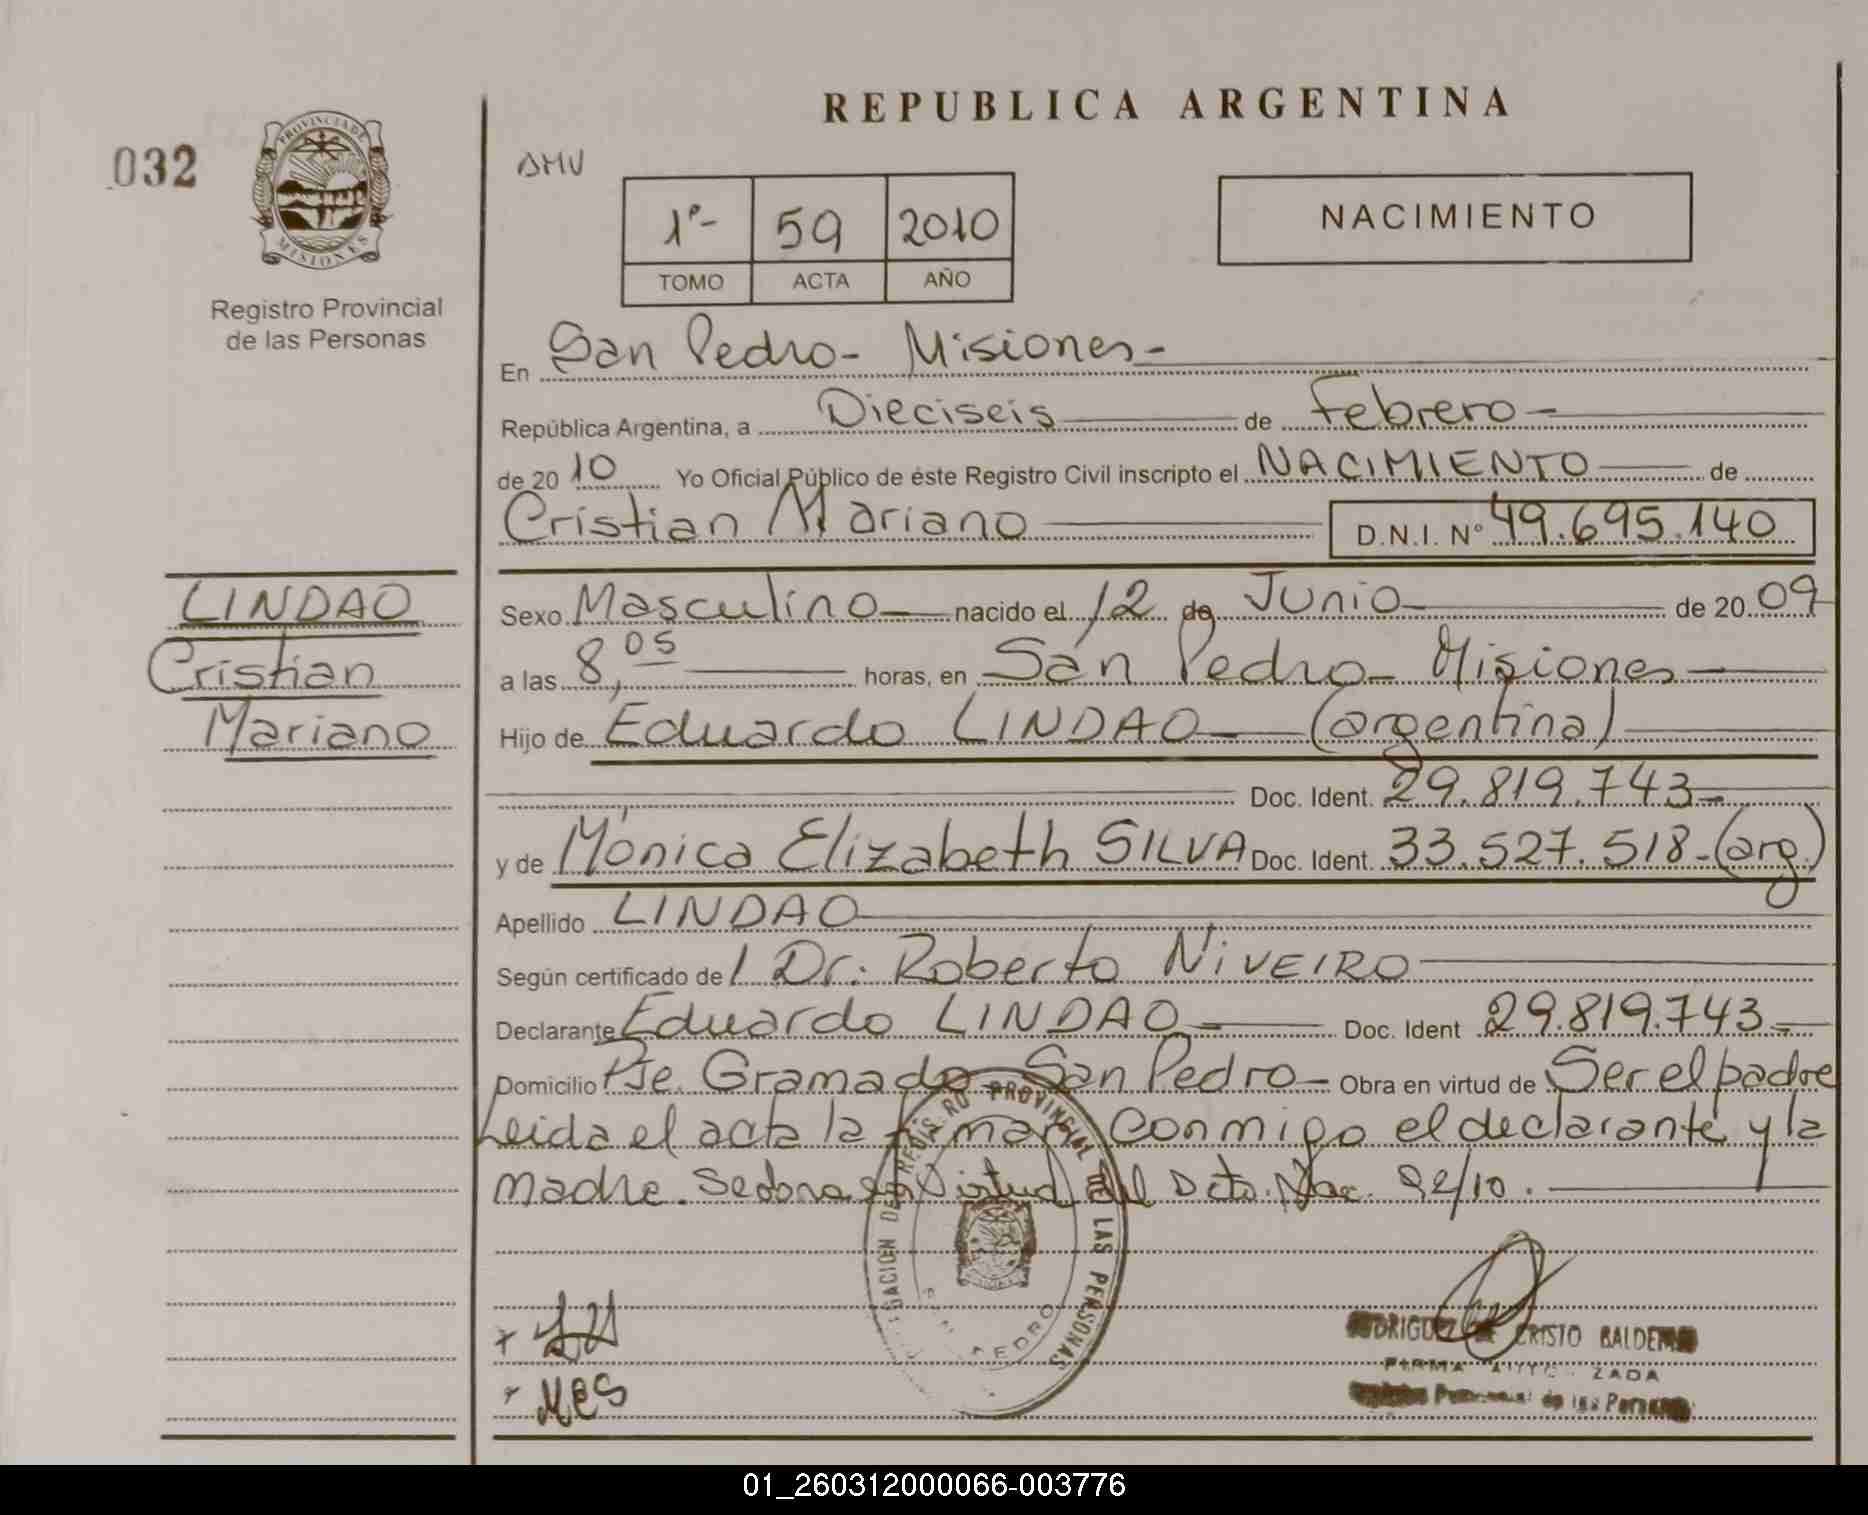 REPUBLICA ARGENTINA
032
PROVINCIA DE
MISIONES
Registro Provincial
de las Personas
1º- 59 2010
TOMO ACTA AÑO
NACIMIENTO
En San Pedro- Misiones-
República Argentina, a Dieciseis de Febrero-
de 2010 Yo Oficial Público de éste Registro Civil inscripto el NACIMIENTO de
Cristian Mariano D.N.I. Nº 49.695.140
LINDAO
Cristian
Mariano
Sexo Masculino nacido el 12 de Junio de 2009
a las 8,05 horas, en San Pedro- Misiones
Hijo de Eduardo LINDAO (argentina)
Doc. Ident. 29.819.743-
y de Mónica Elizabeth SILVA Doc. Ident. 33.527.518-(arg.)
Apellido LINDAO
Según certificado de Dr. Roberto NIVEIRO
Declarante Eduardo LINDAO Doc. Ident 29.819.743-
Domicilio Pje. Gramado- San Pedro- Obra en virtud de Ser el padre
Leida el acta la firman conmigo el declarante y la
madre. Se dona en virtud del Dcto. Nac. 92/10.
REGISTRO PROVINCIAL DE LAS PERSONAS
SAN PEDRO
MES
RODRIGUEZ DE CRISTO
FIRMA AUTORIZADA
Registro Provincial de las Personas
01_260312000066-003776